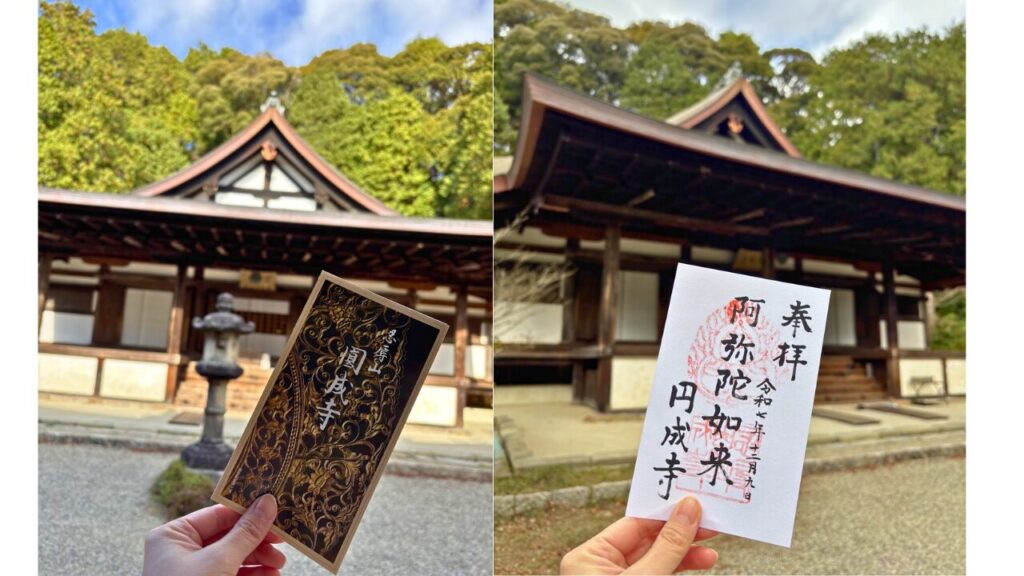 忍辱山
圓成寺
奉拝
阿弥陀如来
令和七年十二月九日
円成寺